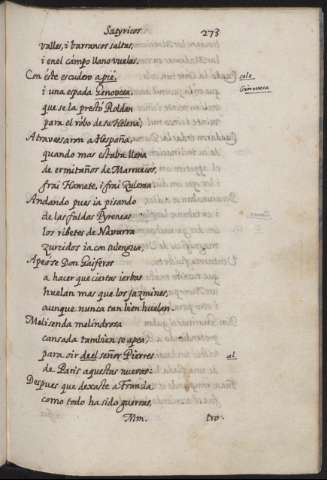 Satyricos. 273
valles, i barrancos saltas,
i en el campo llano vuelas.
Con este escudero a pie,
cele
i una espada Ginovesa,
Ginovesa
que se la prestó Roldan
para el robo de su Helena;
Atravesavan a Hespaña,
quando mas estaba llena
de ermitaños de Marruecos,
frai Hamete, i frai Zulema
Andando pues ia pisando
de las faldas Pyreneas
los ribetes de Navarra
zurzidos ia con su lengua,
Apeose Don Gaiferos
a hacer que ciertas ierbas
huelan mas que los jazmines,
aunque nunca tan bien huelan.
Melisenda melindrosa
cansada tambien se apea,
para oir de el señor Pierres
al
de Paris aquestas nuevas:
Despues que dexaste a Francia
como todo ha sido guerras,
Mm. tro-